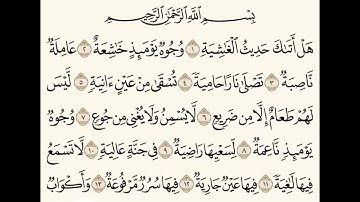 بِسْمِ ٱللَّهِ ٱلرَّحْمَٰنِ ٱلرَّحِيمِ
هَلْ أَتَىٰكَ حَدِيثُ ٱلْغَٰشِيَةِ ١ وُجُوهٌ يَوْمَئِذٍ خَٰشِعَةٌ ٢ عَامِلَةٌ
نَّاصِبَةٌ ٣ تَصْلَىٰ نَارًا حَامِيَةً ٤ تُسْقَىٰ مِنْ عَيْنٍ ءَانِيَةٍ ٥ لَّيْسَ
لَهُمْ طَعَامٌ إِلَّا مِن ضَرِيعٍ ٦ لَّا يُسْمِنُ وَلَا يُغْنِى مِن جُوعٍ ٧ وُجُوهٌ
يَوْمَئِذٍ نَّاعِمَةٌ ٨ لِّسَعْيِهَا رَاضِيَةٌ ٩ فِى جَنَّةٍ عَالِيَةٍ ١٠ لَّا تَسْمَعُ
فِيهَا لَٰغِيَةً ١١ فِيهَا عَيْنٌ جَارِيَةٌ ١٢ فِيهَا سُرُرٌ مَّرْفُوعَةٌ ١٣ وَأَكْوَابٌ